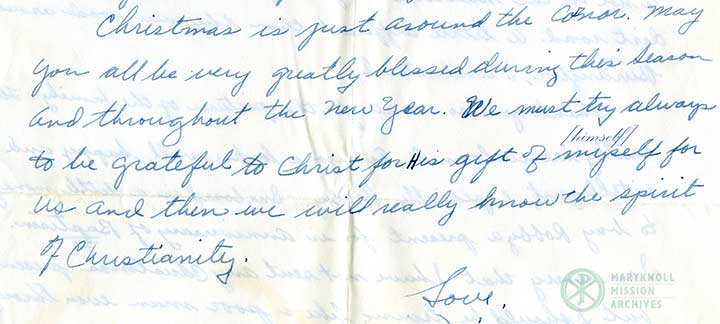 Christmas is just around the Conor. May
you all be very greatly blessed during this season
and throughout the New Year. We must try always
[himself]
to be grateful to Christ for His gift of myself for
us and then we will really know the spirit
of Christianity.
Love,
MARYKNOLL
MISSION
ARCHIVES